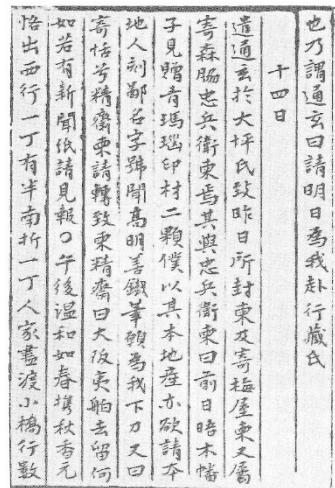 也乃謂通玄曰請明日為我赴行藏氏
十四日
遣通玄於大坪氏致昨日所封柬及寄梅屋柬又屬
寄森脇忠兵衛柬焉其與忠兵衛柬曰前日晤木幡
子見贈青瑪瑙印材二顆僕以其本地產亦欲請本
地人刻鄙名字號聞高明善鐵筆願為我下刀又曰
寄恬兮精齋柬請轉致柬精齋曰大阪夷舶去留何
如若有新聞紙請見報〇午後温和如春攜秋香元
恪出西行一丁有半南折一丁人家盡渡小橋行數